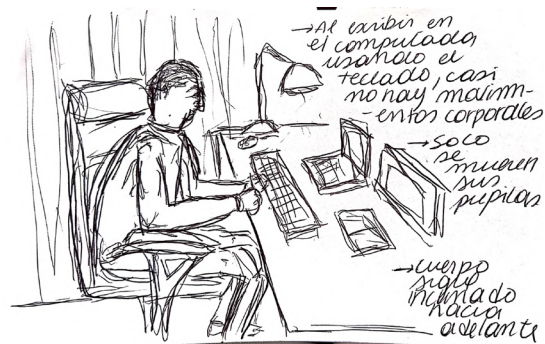 →Al escribir en
el computador
usando el
teclado, casi
no hay movimi-
-entos corporales
→solo
se
mueven
sus
pupilas
→cuerpo
sigue
inclinado
hacia
adelante